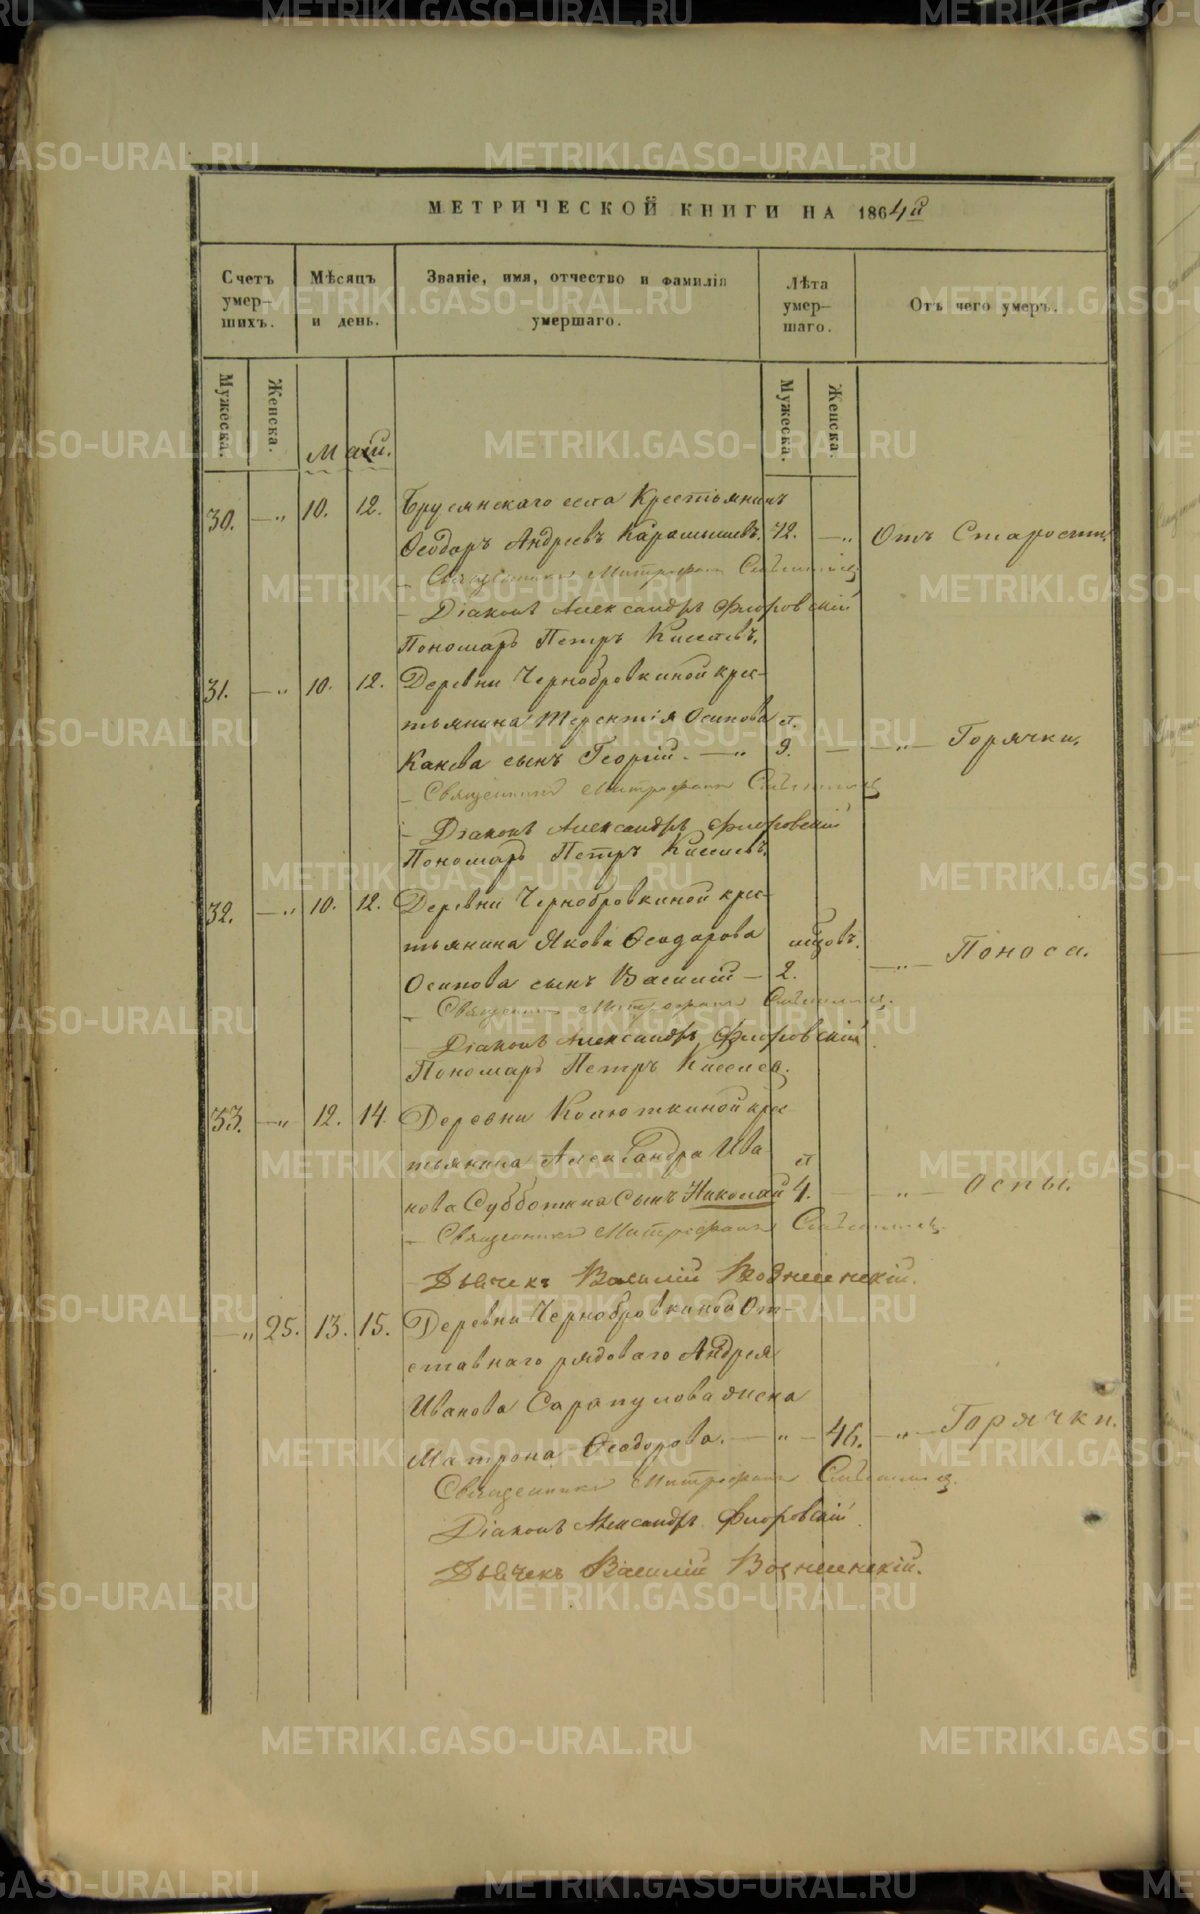 МЕТРИЧЕСКОЙ КНИГИ НА 1864й
Счетъ умер-шихъ.
Мѣсяцъ и день.
Званіе, имя, отчество и фамилія умершаго.
Лѣта умер-шаго.
Отъ чего умеръ.
Мужеска.
Женска.
Мужеска.
Женска.
Май.
30. — „ 10. 12. Бруснянскаго села Крестьянинъ
Ѳеодоръ Андреевъ Карамышевъ. 72. — „ Отъ Старости.
Священникъ Митрофанъ
Діаконъ Александръ Флоровскій
Пономарь Петръ Киселевъ.
31. — „ 10. 12. Деревни Чернобровкиной крес-
тьянина Терентія Осипова л.
Канева сынъ Георгій. — „ 9. — — „ — Горячки.
Священникъ Митрофанъ
Діаконъ Александръ Флоровскій
Пономарь Петръ Киселевъ.
32. — „ 10. 12. Деревни Чернобровкиной крес-
тьянина Якова Ѳеодорова
Осипова сынъ Василій — 2. — „ — Поноса.
Священникъ Митрофанъ
Діаконъ Александръ Флоровскій
Пономарь Петръ Киселев.
33. — „ 12. 14. Деревни Колюткиной крес-
тьянина Александра Ива-
нова Субботина Сынъ Николай 4. — „ — Оспы.
Священникъ Митрофанъ
Дьячекъ Василій Вознесенскій.
— „ 25. 13. 15. Деревни Чернобровкиной От-
ставнаго рядоваго Андрея
Иванова Сарапулова жена
Матрона Ѳеодорова. — „ — 46. — „ — Горячки.
Священникъ Митрофанъ
Діаконъ Александръ Флоровскій
Дьячекъ Василій Вознесенскій.
METRIKI.GASO-URAL.RU